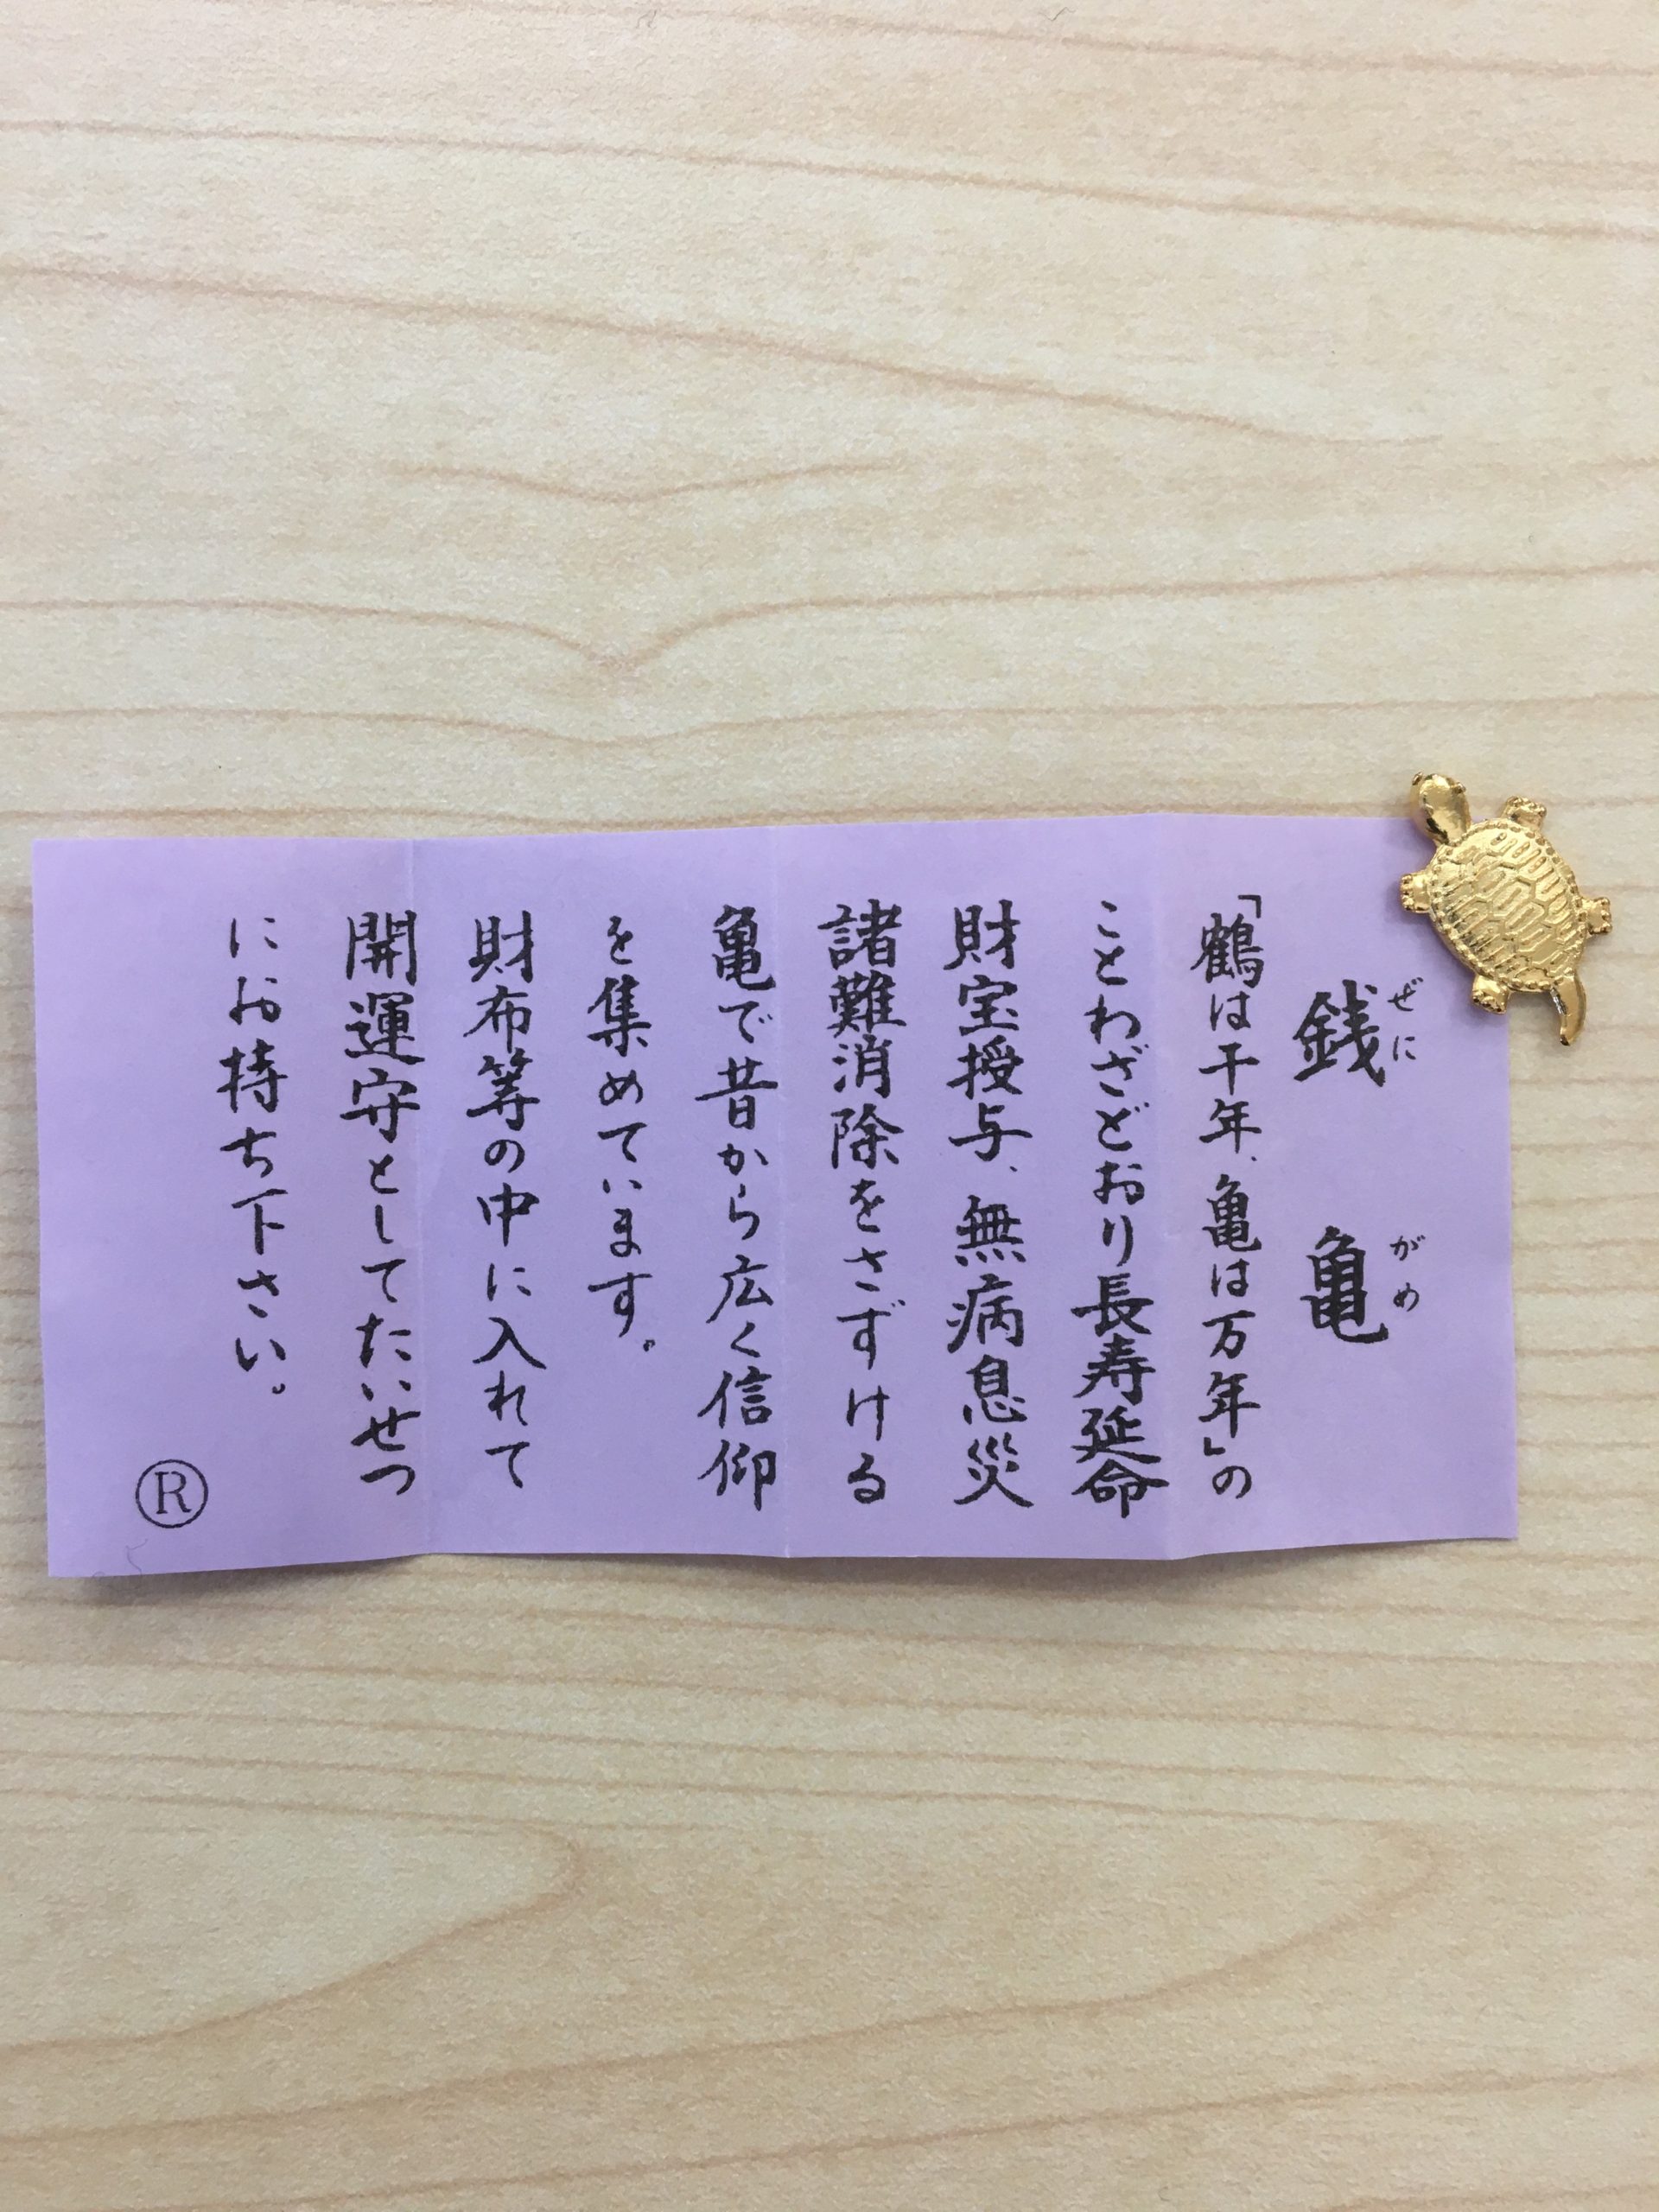 銭亀
ぜに がめ
「鶴は千年、亀は万年」の
ことわざどおり長寿延命
財宝授与、無病息災
諸難消除をさずける
亀で昔から広く信仰
を集めています。
財布等の中に入れて
開運守としてたいせつ
にお持ち下さい。
Ⓡ